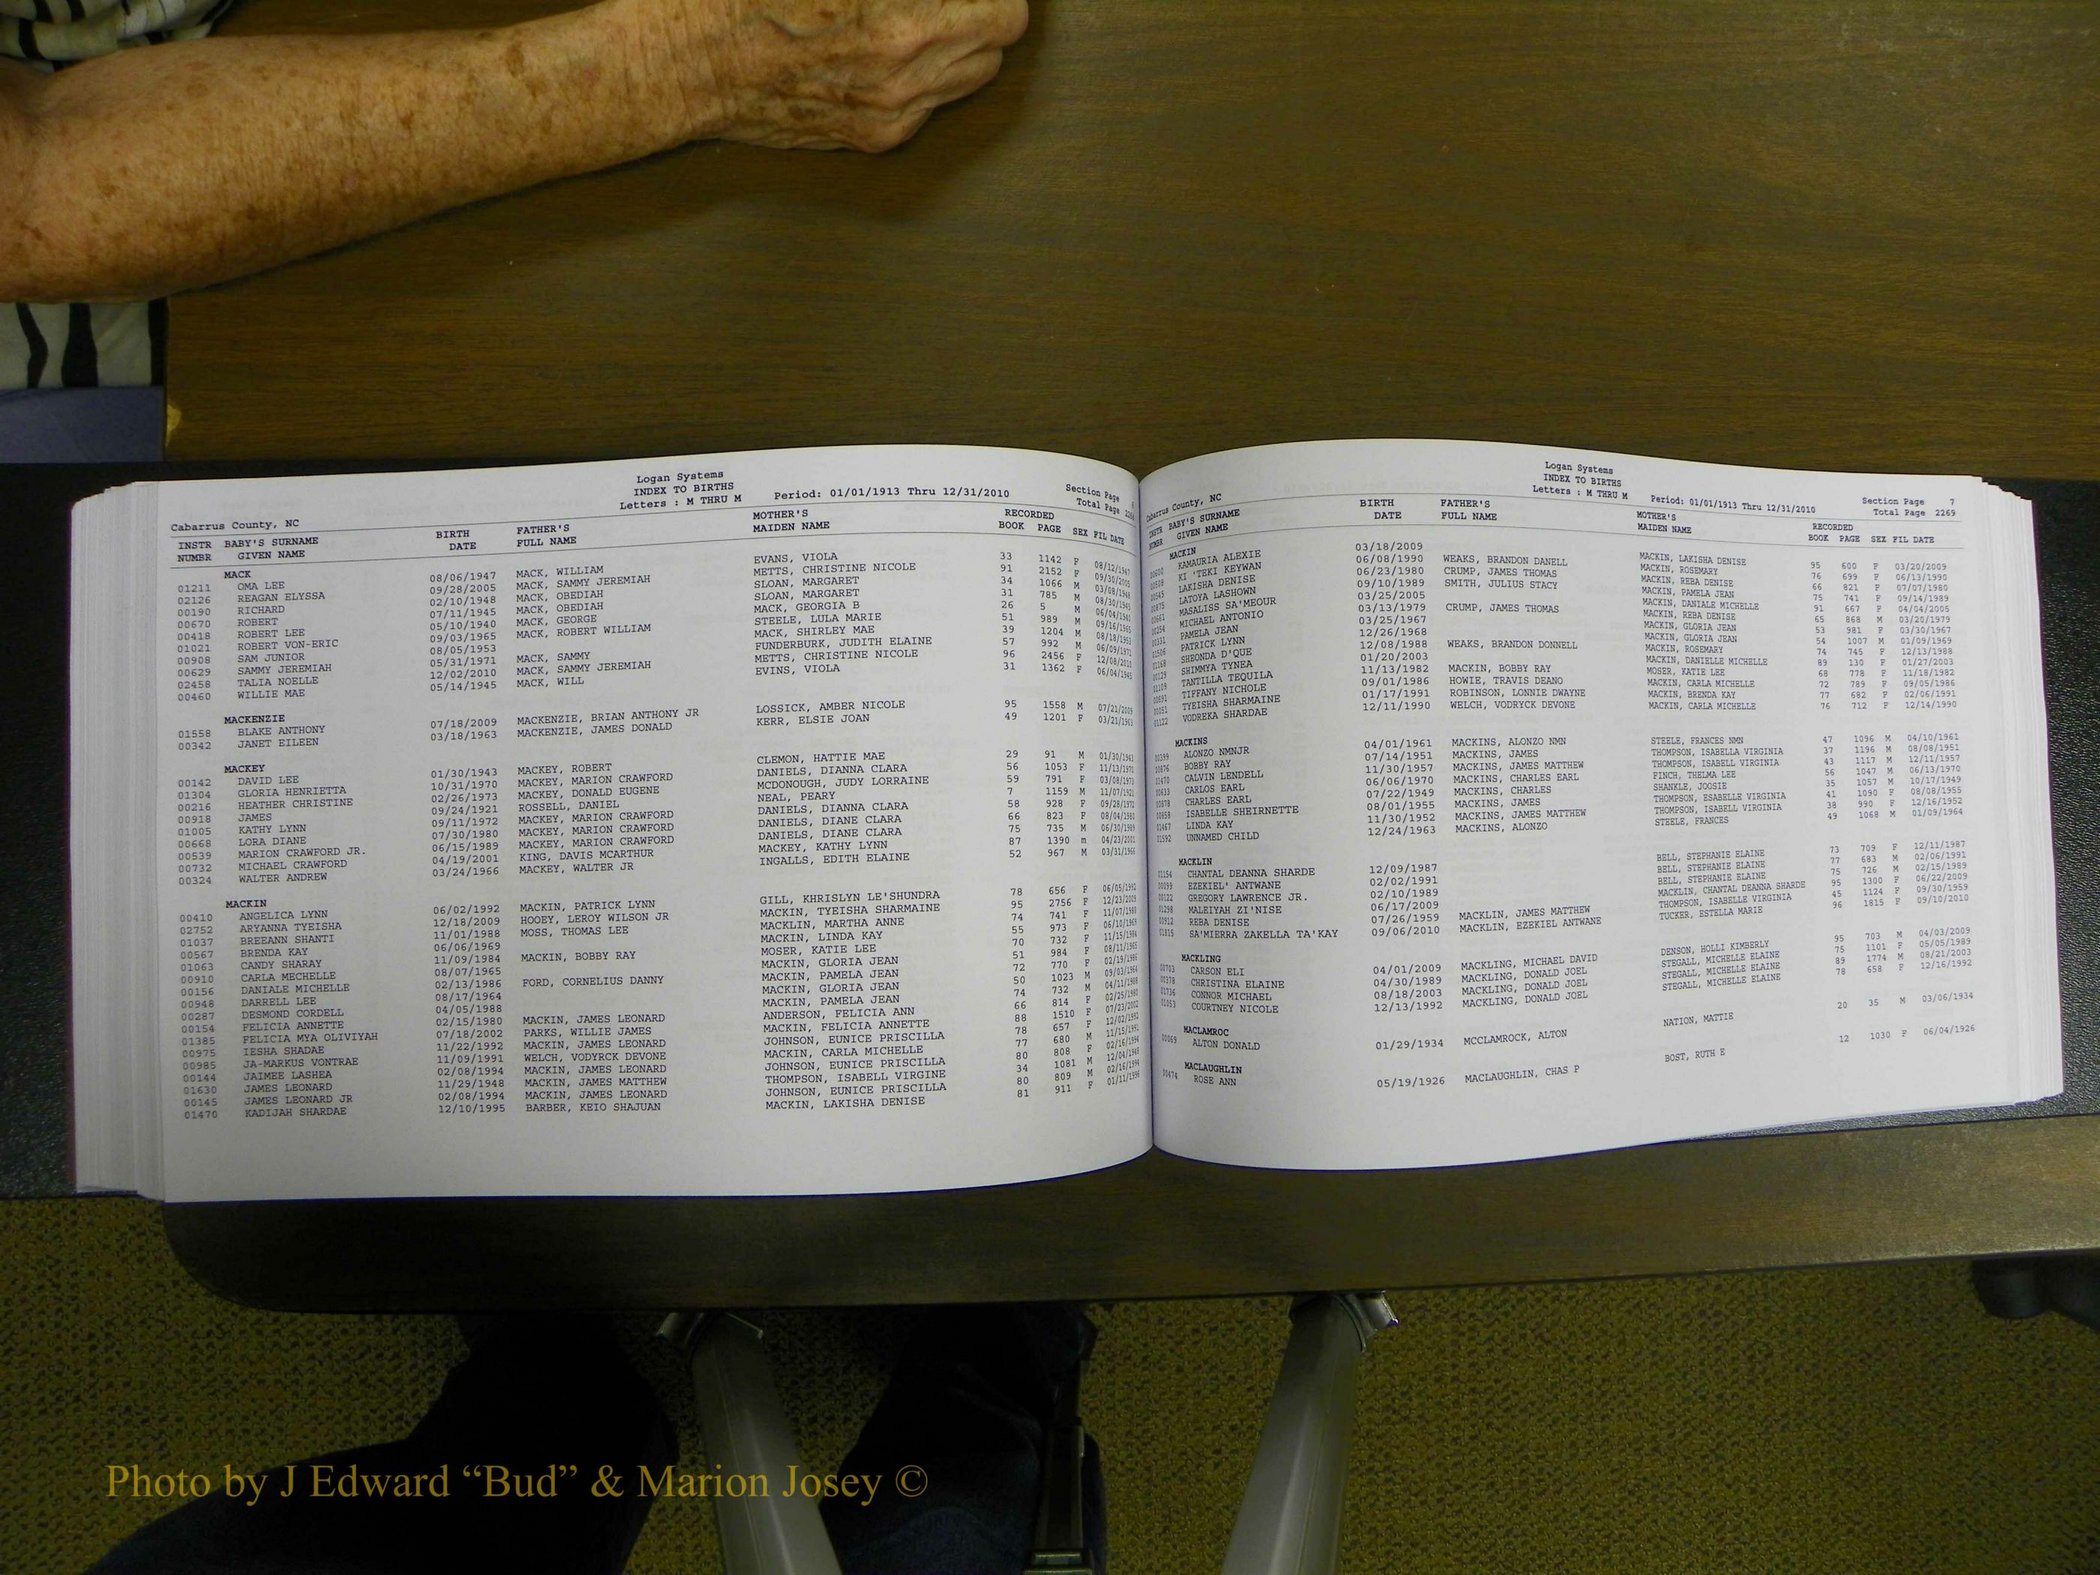 Logan Systems
INDEX TO BIRTHS
Letters : M THRU M Period: 01/01/1913 Thru 12/31/2010
Section Page
Total Page
Cabarrus County, NC
INSTR BABY'S SURNAME BIRTH FATHER'S MOTHER'S RECORDED
NUMBR GIVEN NAME DATE FULL NAME MAIDEN NAME BOOK PAGE SEX FIL DATE
MACK
01211 OMA LEE 08/06/1947 MACK, WILLIAM EVANS, VIOLA 33 1142 F 08/12/1947
02126 REAGAN ELYSSA 09/28/2005 MACK, SAMMY JEREMIAH METTS, CHRISTINE NICOLE 91 2152 F 09/30/2005
00190 RICHARD 02/10/1948 MACK, OBEDIAH SLOAN, MARGARET 34 1066 M 03/08/1948
00670 ROBERT 07/11/1945 MACK, OBEDIAH SLOAN, MARGARET 31 785 M 08/30/1945
00418 ROBERT LEE 05/10/1940 MACK, GEORGE MACK, GEORGIA B 26 5 M 06/04/1941
01021 ROBERT VON-ERIC 09/03/1965 MACK, ROBERT WILLIAM STEELE, LULA MARIE 51 989 M 09/16/1965
00908 SAM JUNIOR 08/05/1953 MACK, SHIRLEY MAE 39 1204 M 08/18/1953
00629 SAMMY JEREMIAH 05/31/1971 MACK, SAMMY FUNDERBURK, JUDITH ELAINE 57 992 M 06/09/1971
02458 TALIA NOELLE 12/02/2010 MACK, SAMMY JEREMIAH METTS, CHRISTINE NICOLE 96 2456 F 12/08/2010
00460 WILLIE MAE 05/14/1945 MACK, WILL EVINS, VIOLA 31 1362 F 06/04/1945
MACKENZIE
01558 BLAKE ANTHONY 07/18/2009 MACKENZIE, BRIAN ANTHONY JR LOSSICK, AMBER NICOLE 95 1558 M 07/21/2009
00342 JANET EILEEN 03/18/1963 MACKENZIE, JAMES DONALD KERR, ELSIE JOAN 49 1201 F 03/21/1963
MACKEY
00142 DAVID LEE 01/30/1943 MACKEY, ROBERT CLEMON, HATTIE MAE 29 91 M 01/30/1943
01304 GLORIA HENRIETTA 10/31/1970 MACKEY, MARION CRAWFORD DANIELS, DIANNA CLARA 56 1053 F 11/13/1970
00216 HEATHER CHRISTINE 02/26/1973 MACKEY, DONALD EUGENE MCDONOUGH, JUDY LORRAINE 59 791 F 03/08/1973
00918 JAMES 09/24/1921 ROSSELL, DANIEL NEAL, PEARY 7 1159 M 11/07/1921
01005 KATHY LYNN 09/11/1972 MACKEY, MARION CRAWFORD DANIELS, DIANNA CLARA 58 928 F 09/28/1972
00668 LORA DIANE 07/30/1980 MACKEY, MARION CRAWFORD DANIELS, DIANE CLARA 66 823 F 08/04/1980
00539 MARION CRAWFORD JR. 06/15/1989 MACKEY, MARION CRAWFORD DANIELS, DIANE CLARA 75 735 M 06/30/1989
00732 MICHAEL CRAWFORD 04/19/2001 KING, DAVIS MCARTHUR MACKEY, KATHY LYNN 87 1390 m 04/23/2001
00324 WALTER ANDREW 03/24/1966 MACKEY, WALTER JR INGALLS, EDITH ELAINE 52 967 M 03/31/1966
MACKIN
00410 ANGELICA LYNN 06/02/1992 MACKIN, PATRICK LYNN GILL, KHRISLYN LE'SHUNDRA 78 656 F 06/05/1992
02752 ARYANNA TYEISHA 12/18/2009 HOOEY, LEROY WILSON JR MACKIN, TYEISHA SHARMAINE 95 2756 F 12/23/2009
01037 BREEANN SHANTI 11/01/1988 MOSS, THOMAS LEE MACKLIN, MARTHA ANNE 74 741 F 11/07/1988
00567 BRENDA KAY 06/06/1969 MACKIN, LINDA KAY 55 973 F 06/10/1969
01063 CANDY SHARAY 11/09/1984 MACKIN, BOBBY RAY MOSER, KATIE LEE 70 732 F 11/15/1984
00910 CARLA MECHELLE 08/07/1965 MACKIN, GLORIA JEAN 51 984 F 08/11/1965
00156 DANIALE MICHELLE 02/13/1986 FORD, CORNELIUS DANNY MACKIN, PAMELA JEAN 72 770 F 02/19/1986
00948 DARRELL LEE 08/17/1964 MACKIN, GLORIA JEAN 50 1023 M 09/03/1964
00287 DESMOND CORDELL 04/05/1988 MACKIN, PAMELA JEAN 74 732 M 04/11/1988
00154 FELICIA ANNETTE 02/15/1980 MACKIN, JAMES LEONARD ANDERSON, FELICIA ANN 66 814 F 02/25/1980
01385 FELICIA MYA OLIVIYAH 07/18/2002 PARKS, WILLIE JAMES MACKIN, FELICIA ANNETTE 88 1510 F 07/23/2002
00975 IESHA SHADAE 11/22/1992 MACKIN, JAMES LEONARD JOHNSON, EUNICE PRISCILLA 78 657 F 12/02/1992
00985 JA-MARKUS VONTRAE 11/09/1991 WELCH, VODYRCK DEVONE MACKIN, CARLA MICHELLE 77 680 M 11/15/1991
00144 JAIMEE LASHEA 02/08/1994 MACKIN, JAMES LEONARD JOHNSON, EUNICE PRISCILLA 80 808 F 02/16/1994
01630 JAMES LEONARD 11/29/1948 MACKIN, JAMES MATTHEW THOMPSON, ISABELL VIRGINE 34 1081 M 12/04/1948
00145 JAMES LEONARD JR 02/08/1994 MACKIN, JAMES LEONARD JOHNSON, EUNICE PRISCILLA 80 809 M 02/16/1994
01470 KADIJAH SHARDAE 12/10/1995 BARBER, KEIO SHAJUAN MACKIN, LAKISHA DENISE 81 911 F 01/11/1996
Logan Systems
INDEX TO BIRTHS
Letters : M THRU M Period: 01/01/1913 Thru 12/31/2010
Section Page 7
Total Page 2269
Cabarrus County, NC
INSTR BABY'S SURNAME BIRTH FATHER'S MOTHER'S RECORDED
NUMBR GIVEN NAME DATE FULL NAME MAIDEN NAME BOOK PAGE SEX FIL DATE
MACKIN
00600 KAMAURIA ALEXIE 03/18/2009 MACKIN, LAKISHA DENISE 95 600 F 03/20/2009
KI 'TEKI KEYWAN 06/08/1990 WEAKS, BRANDON DANELL MACKIN, ROSEMARY 76 699 F 06/13/1990
00545 LAKISHA DENISE 06/23/1980 CRUMP, JAMES THOMAS MACKIN, REBA DENISE 66 821 F 07/07/1980
00875 LATOYA LASHOWN 09/10/1989 SMITH, JULIUS STACY MACKIN, PAMELA JEAN 75 741 F 09/14/1989
00661 MASALISS SA'MEOUR 03/25/2005 MACKIN, DANIALE MICHELLE 91 667 F 04/04/2005
00254 MICHAEL ANTONIO 03/13/1979 CRUMP, JAMES THOMAS MACKIN, REBA DENISE 65 868 M 03/20/1979
00331 PAMELA JEAN 03/25/1967 MACKIN, GLORIA JEAN 53 981 F 03/30/1967
01506 PATRICK LYNN 12/26/1968 MACKIN, GLORIA JEAN 54 1007 M 01/09/1969
01168 SHEONDA D'QUE 12/08/1988 WEAKS, BRANDON DONNELL MACKIN, ROSEMARY 74 745 F 12/13/1988
00129 SHIMMYA TYNEA 01/20/2003 MACKIN, DANIELLE MICHELLE 89 130 F 01/27/2003
01109 TANTILLA TEQUILA 11/13/1982 MACKIN, BOBBY RAY MOSER, KATIE LEE 68 778 F 11/18/1982
00891 TIFFANY NICHOLE 09/01/1986 HOWIE, TRAVIS DEANO MACKIN, CARLA MICHELLE 72 789 F 09/05/1986
00051 TYEISHA SHARMAINE 01/17/1991 ROBINSON, LONNIE DWAYNE MACKIN, BRENDA KAY 77 682 F 02/06/1991
01122 VODREKA SHARDAE 12/11/1990 WELCH, VODRYCK DEVONE MACKIN, CARLA MICHELLE 76 712 F 12/14/1990
MACKINS
00399 ALONZO NMNJR 04/01/1961 MACKINS, ALONZO NMN STEELE, FRANCES NMN 47 1096 M 04/10/1961
00876 BOBBY RAY 07/14/1951 MACKINS, JAMES THOMPSON, ISABELLA VIRGINIA 37 1196 M 08/08/1951
01470 CALVIN LENDELL 11/30/1957 MACKINS, JAMES MATTHEW THOMPSON, ISABELL VIRGINIA 43 1117 M 12/11/1957
00633 CARLOS EARL 06/06/1970 MACKINS, CHARLES EARL FINCH, THELMA LEE 56 1047 M 06/13/1970
00878 CHARLES EARL 07/22/1949 MACKINS, CHARLES SHANKLE, JOOSIE 35 1057 M 10/17/1949
00858 ISABELLE SHEIRNETTE 08/01/1955 MACKINS, JAMES THOMPSON, ESABELLE VIRGINIA 41 1090 F 08/08/1955
01467 LINDA KAY 11/30/1952 MACKINS, JAMES MATTHEW THOMPSON, ISABELL VIRGINIA 38 990 F 12/16/1952
01592 UNNAMED CHILD 12/24/1963 MACKINS, ALONZO STEELE, FRANCES 49 1068 M 01/09/1964
MACKLIN
01154 CHANTAL DEANNA SHARDE 12/09/1987 BELL, STEPHANIE ELAINE 73 709 F 12/11/1987
00099 EZEKIEL' ANTWANE 02/02/1991 BELL, STEPHANIE ELAINE 77 683 M 02/06/1991
00122 GREGORY LAWRENCE JR. 02/10/1989 BELL, STEPHANIE ELAINE 75 726 M 02/15/1989
01298 MALEIYAH ZI'NISE 06/17/2009 MACKLIN, CHANTAL DEANNA SHARDE 95 1300 F 06/22/2009
00912 REBA DENISE 07/26/1959 MACKLIN, JAMES MATTHEW THOMPSON, ISABELLE VIRGINIA 45 1124 F 09/30/1959
01815 SA'MIERRA ZAKELLA TA'KAY 09/06/2010 MACKLIN, EZEKIEL ANTWANE TUCKER, ESTELLA MARIE 96 1815 F 09/10/2010
MACKLING
00703 CARSON ELI 04/01/2009 MACKLING, MICHAEL DAVID DENSON, HOLLI KIMBERLY 95 703 M 04/03/2009
00378 CHRISTINA ELAINE 04/30/1989 MACKLING, DONALD JOEL STEGALL, MICHELLE ELAINE 75 1101 F 05/05/1989
01736 CONNOR MICHAEL 08/18/2003 MACKLING, DONALD JOEL STEGALL, MICHELLE ELAINE 89 1774 M 08/21/2003
01053 COURTNEY NICOLE 12/13/1992 MACKLING, DONALD JOEL STEGALL, MICHELLE ELAINE 78 658 F 12/16/1992
MACLAMROC
00069 ALTON DONALD 01/29/1934 MCCLAMROCK, ALTON NATION, MATTIE 20 35 M 03/06/1934
MACLAUGHLIN
00474 ROSE ANN 05/19/1926 MACLAUGHLIN, CHAS P BOST, RUTH E 12 1030 F 06/04/1926
Photo by J Edward “Bud” & Marion Josey ©